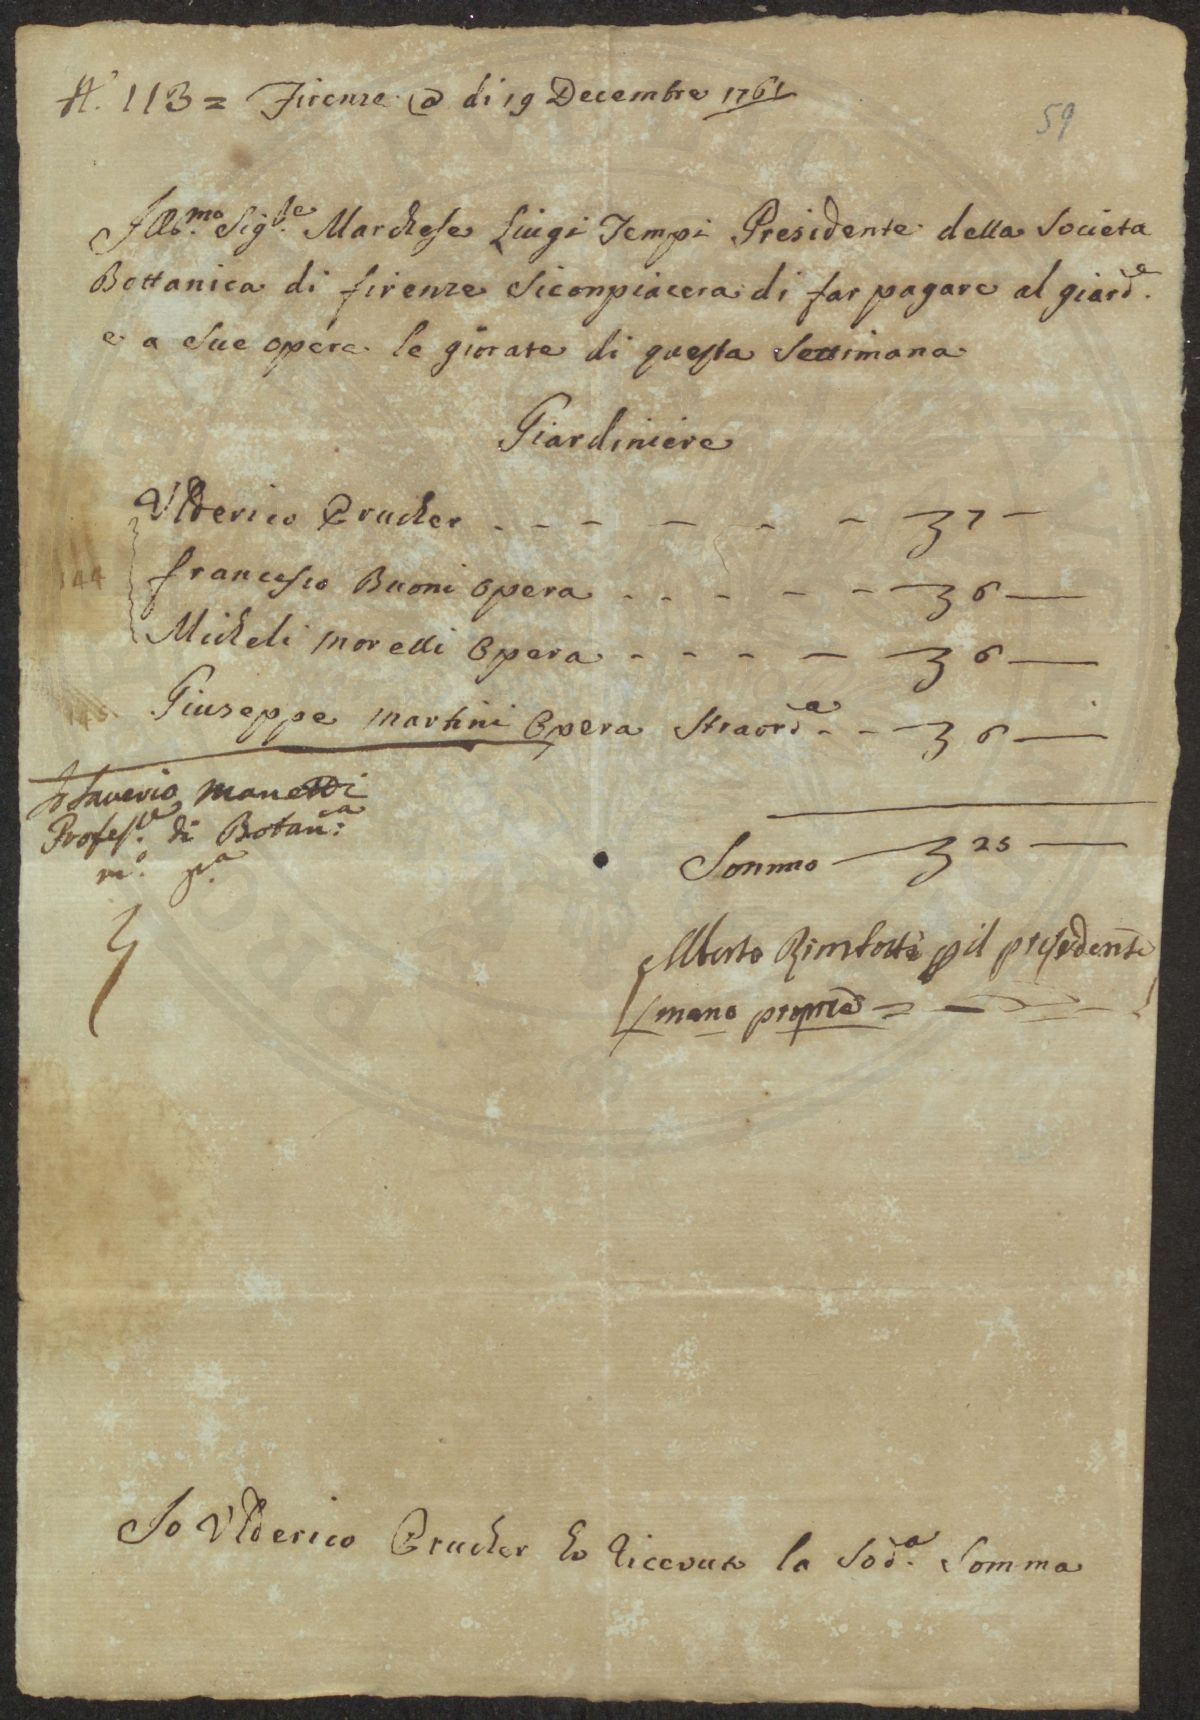 N.° 113 = Firenze @ di 19 Decembre 1761
59
Ill:mo Sig:re Marchese Luigi Tempi Presidente della Societa
Bottanica di firenze Siconpiacera di far pagare al giard:e
e a Sue opere le giorate di questa Settimana
Giardiniere
Ulderico Prucher - - - - - - 7 -
144
francesco Buoni Opera - - - - - 6 -
Micheli Morelli Opera - - - - - 6 -
145
Giuseppe Martini Opera Straord:a - - 6 -
Saverio Manetti
Profes:re di Botan:ca
m:o p:a
Sommo 25 -
Alberto Rimbotti p il presidente
mano propria =
Io Ulderico Prucher ho Ricevuto la Sod:a Somma